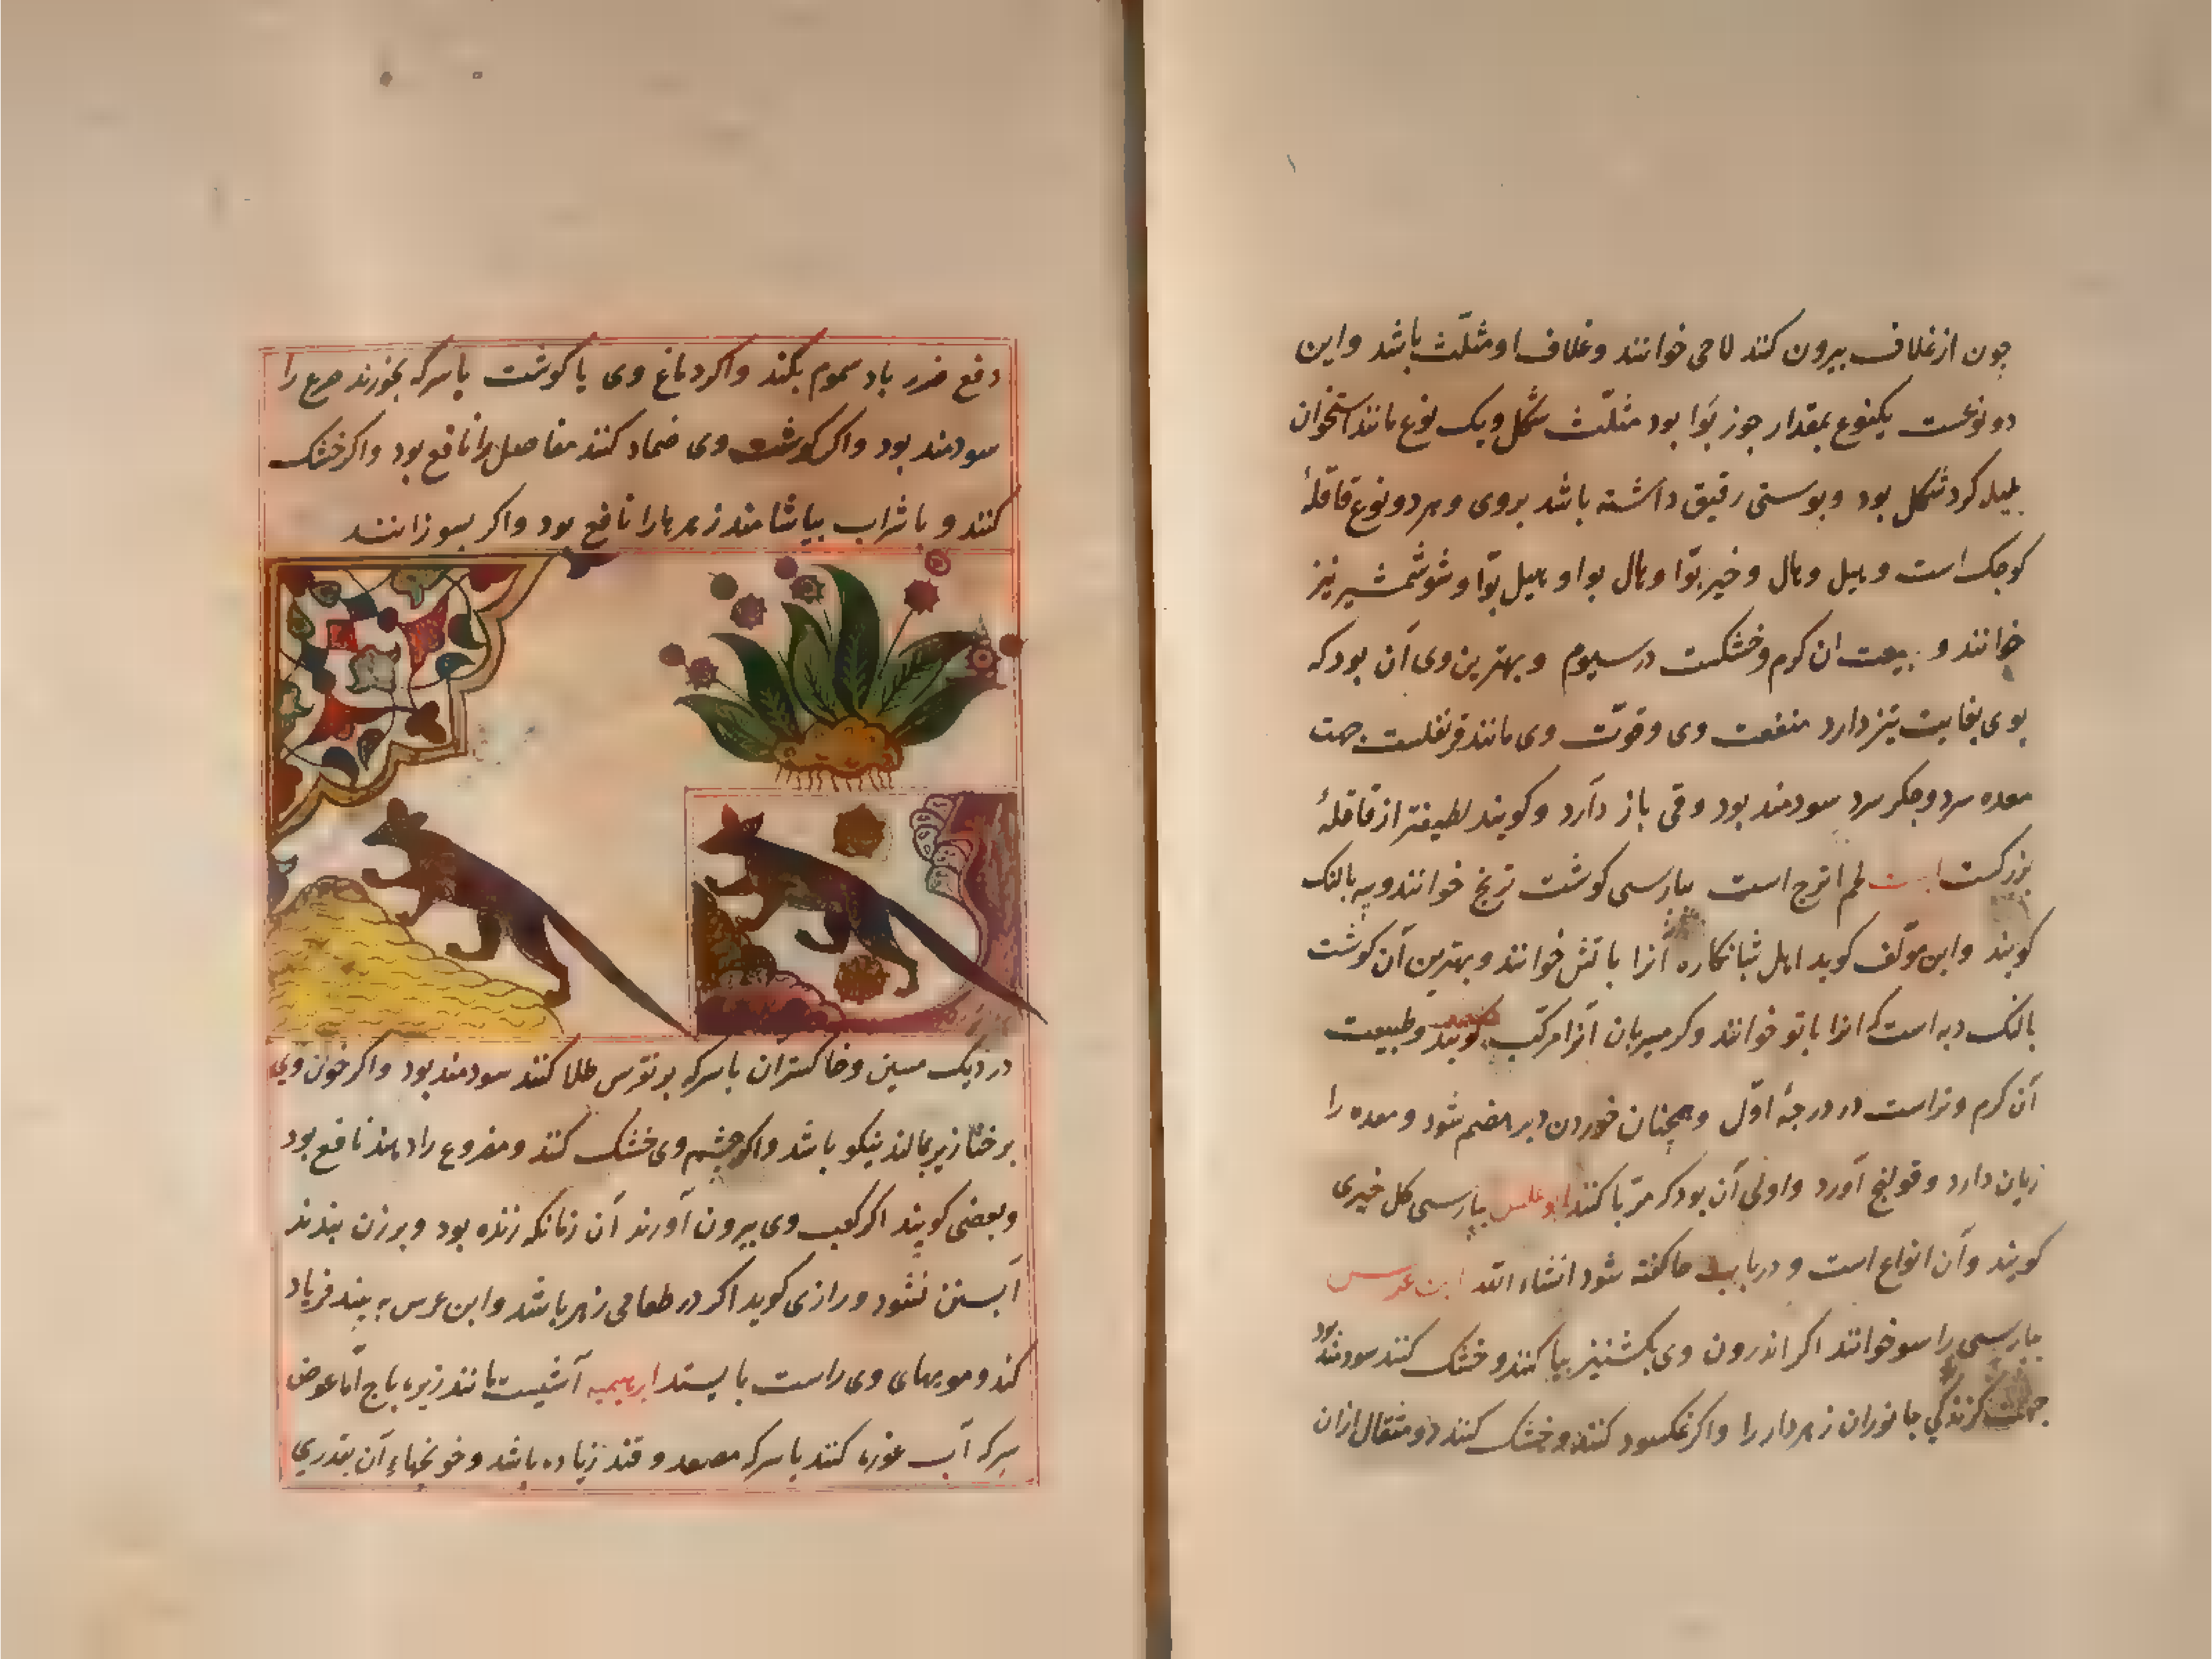 چون از غلاف بیرون کنند لاحی خوانند و غلاف او مثلّث باشد و این
دو نوعست یکنوع بمقدار جوز بوّا بود مثلّث شکل و یک نوع مانند استخوان
بلیله کرد شکل بود و پوستی رقیق داشته باشد بروی و هر دو نوع قاقلهٔ
کوچک است و هیل و هال و خیر بوّا و هال بوا و هیل بوّا و شوشمشیر نیز
خوانند و بیعت ان کرم و خشکست در سیوم و بهترین وی آن بود که
بوی بغایت تیز دارد منفعت وی و قوّت وی مانند قرنفلست جهت
معده سرد و جکر سرد سودمند بود و قی باز دارد و کویند لطیفتر از قاقلهٔ
بزرکست لحم اترج است بپارسی کوشت ترنج خوانند و پیه بالنک
کویند و این مؤلف کوید اهل شبانکاره آنرا باتش خوانند و بهترین آن کوشت
بالنک دیه است که انرا باتو خوانند و کرمسیریان آنرا مرکّب کویند و طبیعت
آن کرم و تراست در درجهٔ اوّل و همچنان خوردن دیر هضم شود و معده را
زیان دارد و قولنج آورد و اولی آن بود که مربّا کنند بپارسی کل خیری
کویند و آن انواع است و در باب خا کفته شود انشاء الله ابن عرس
بپارسی راسو خوانند اکر اندرون وی بکشنیز بیاکنند و خشک کنند سودمند بود
جهت کزندکی جانوران زهردار را و اکر نمکسود کنند و خشک کنند دو مثقال ازان
دفع ضرر باد سموم بکند و اکر دماغ وی یا کوشت با سرکه بخورند صرع را
سودمند بود و اکر کوشت وی ضماد کنند مفاصل را نافع بود و اکر خشک
کنند و با شراب بیاشامند زهرها را نافع بود و اکر بسوزانند
در دیک مسین و خاکستر ان با سرکه بر نقرس طلا کنند سودمند بود و اکر خون وی
بر خنازیر بمالند نیکو باشد و اکر چشم وی خشک کنند و مصروع را دهند نافع بود
و بعضی کویند اکر کعب وی بیرون آورند آن زمانکه زنده بود و بر زن بندند
آبستن نشود و رازی کوید اکر در طعامی زهر باشد و ابن عرس به بیند فریاد
کند و مویهای وی راست بایستد ابرهیمیه آشیست مانند زیره باج امّا عوض
سرکه آب غوره کنند با سرکه مصعد و قند زیاده باشد و خونجهاء آن بقدری